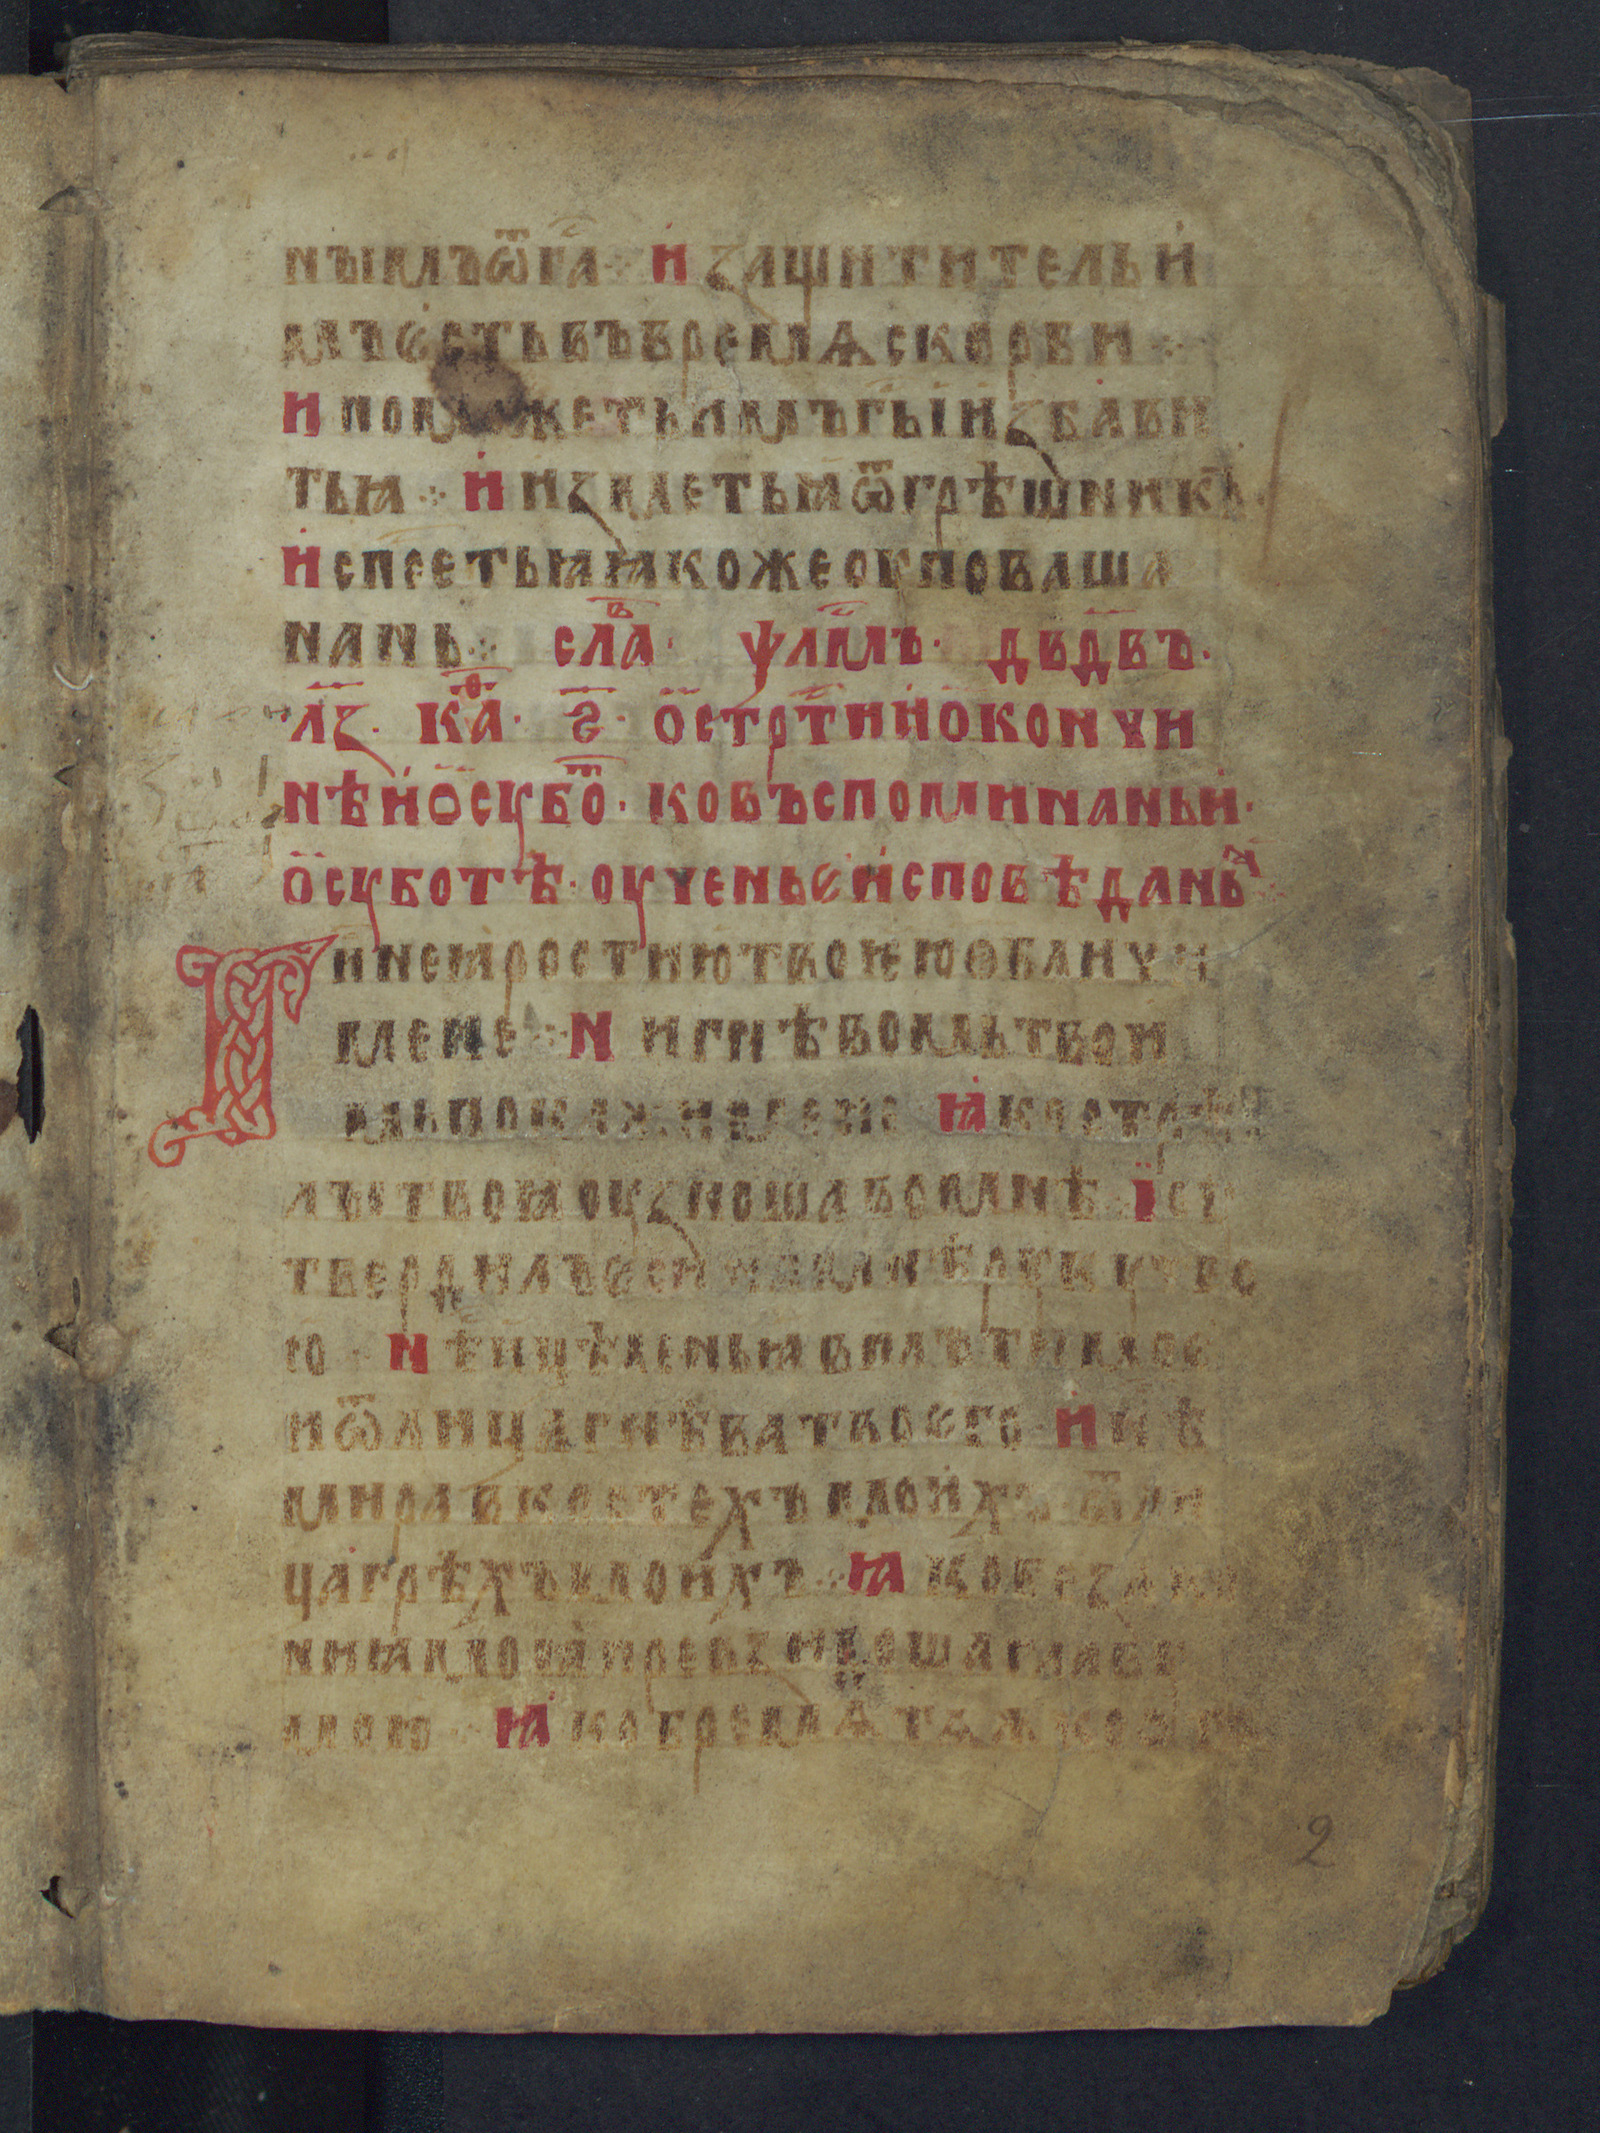 нꙑмъѿг҃а · И защитительи
мъѥстьвъвремѧскорби ⁘
И поможетьимъг҃ьіизбави
тьꙗ ⁘ И изметьꙗѿгрѣшникъ ·
И сп҃сетьꙗꙗкожеоуповаша
нань ⁘ сла҃в · ѱл҃мъ · дв҃двъ ·
л҃з · каѳ · ѕ҃ · острⷭ҇тиіиоконьчи
нѣиосуботⷪ · ковъспоминаньи ·
осуботѣ · оучениѥисповѣданьꙗ
Г҃инеꙗростиютвоѥюобличи
мене ⁘ Н игнѣвомьтвои
мьпокажимене · Ꙗ кострѣ
лꙑтвоꙗоузношавомнѣ · Ї оу
твердилъѥсинамнѣрукутво
ю · Н ѣицѣленьꙗвплътимоѥ
иѿлицагнѣватвоѥго · И нѣ
миравкостехъмоихъѿли
цагрѣхъмоихъ ⁘ Ꙗ кобезако
ниꙗмоꙗпревзидошаглаву
мою ⁘ Ꙗ кобремѧтѧжкоѥ
2